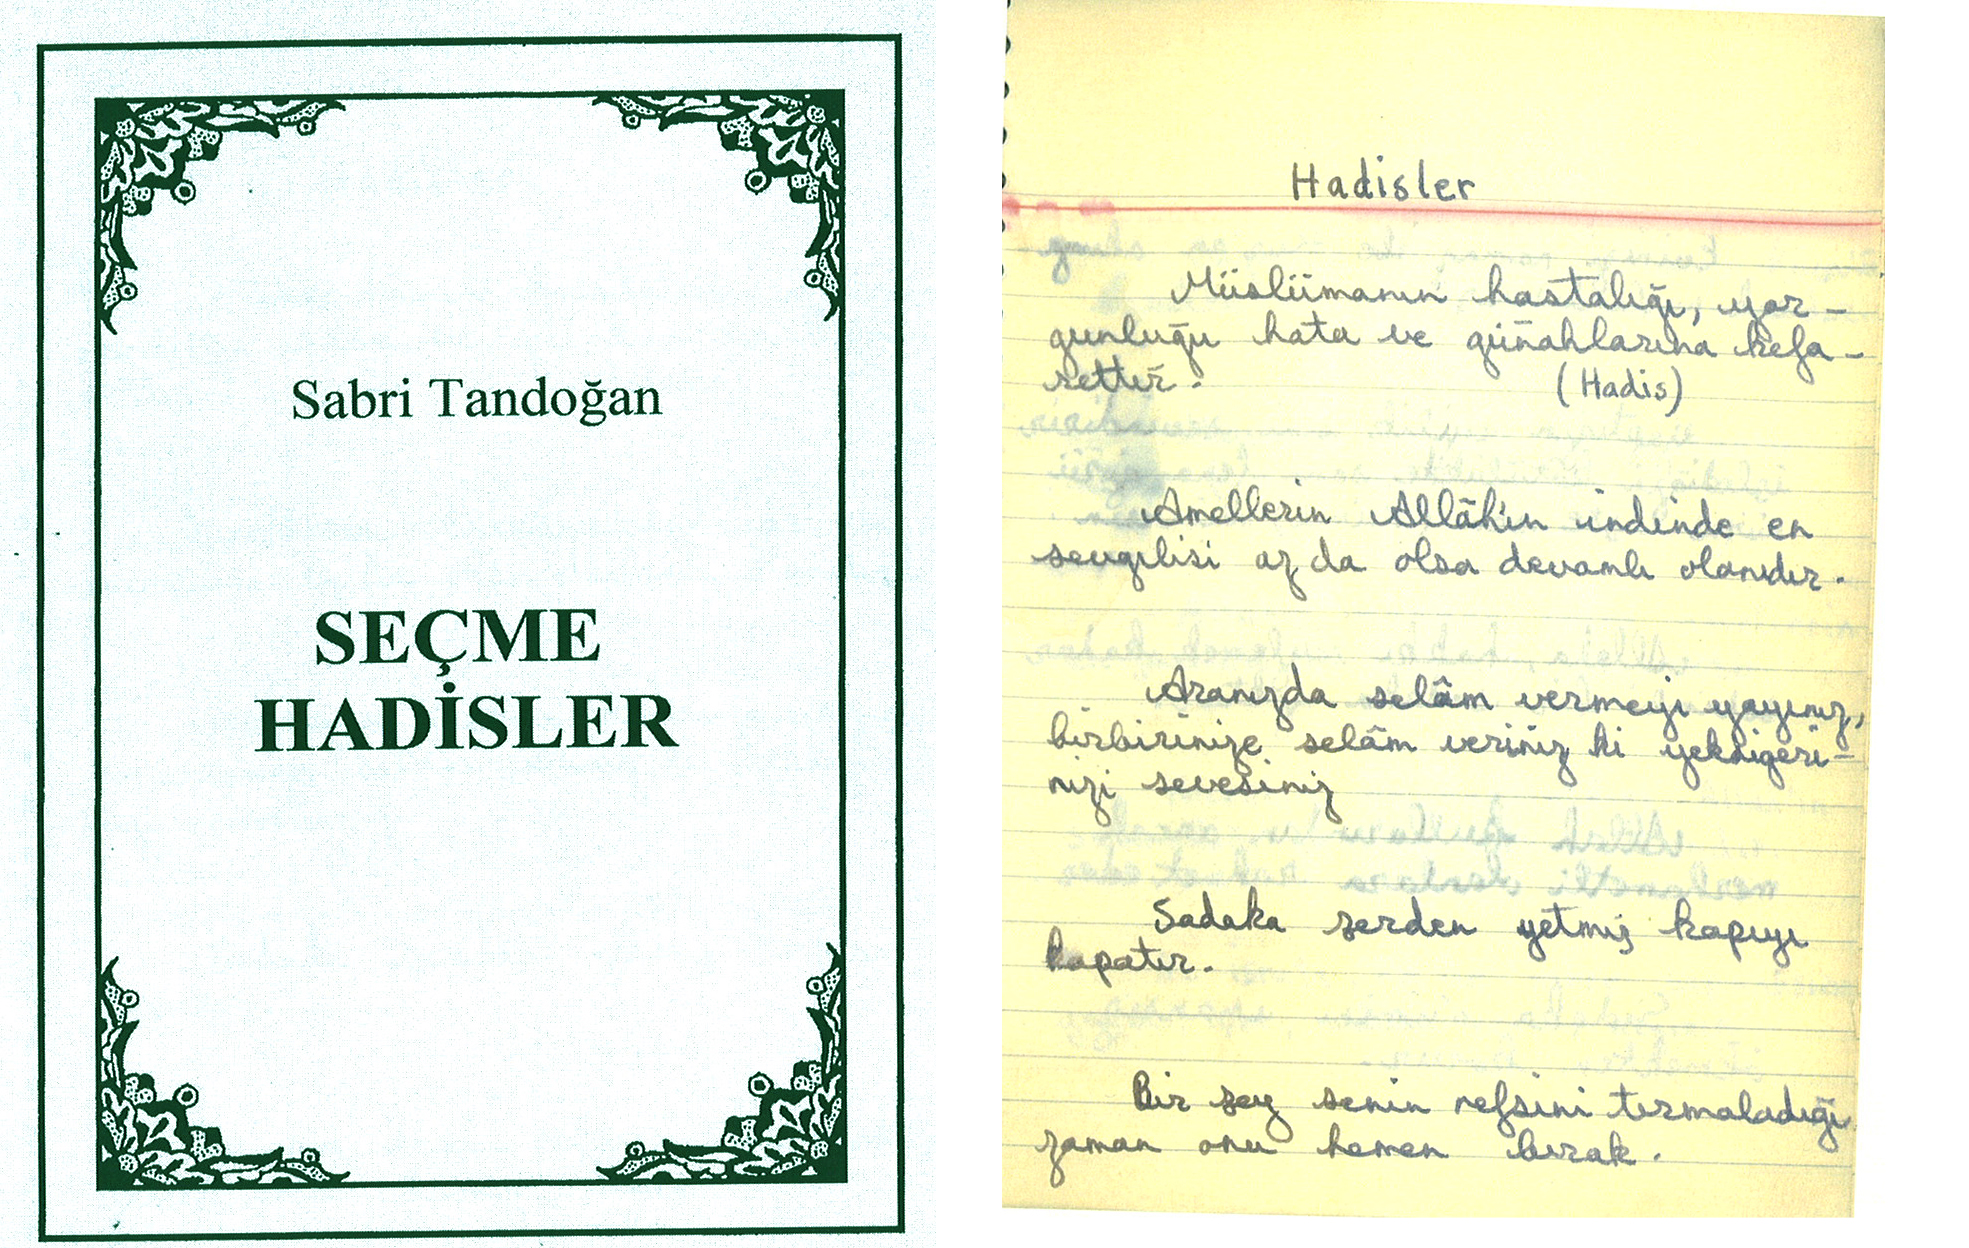 Sabri Tandoğan
SEÇME
HADİSLER
Hadisler
Müslümanın hastalığı, yor-
gunluğu hata ve günahlarına kefa-
rettir.
(Hadis)
Amellerin Allâh'ın indinde en
sevgilisi az da olsa devamlı olanıdır.
Aranızda selâm vermeyi yayınız,
birbirinize selâm veriniz ki yekdigeri-
nizi sevesiniz
Sadaka şerden yetmiş kapıyı
kapatır.
Bir şey senin nefsini tırmaladığı
zaman onu hemen bırak.